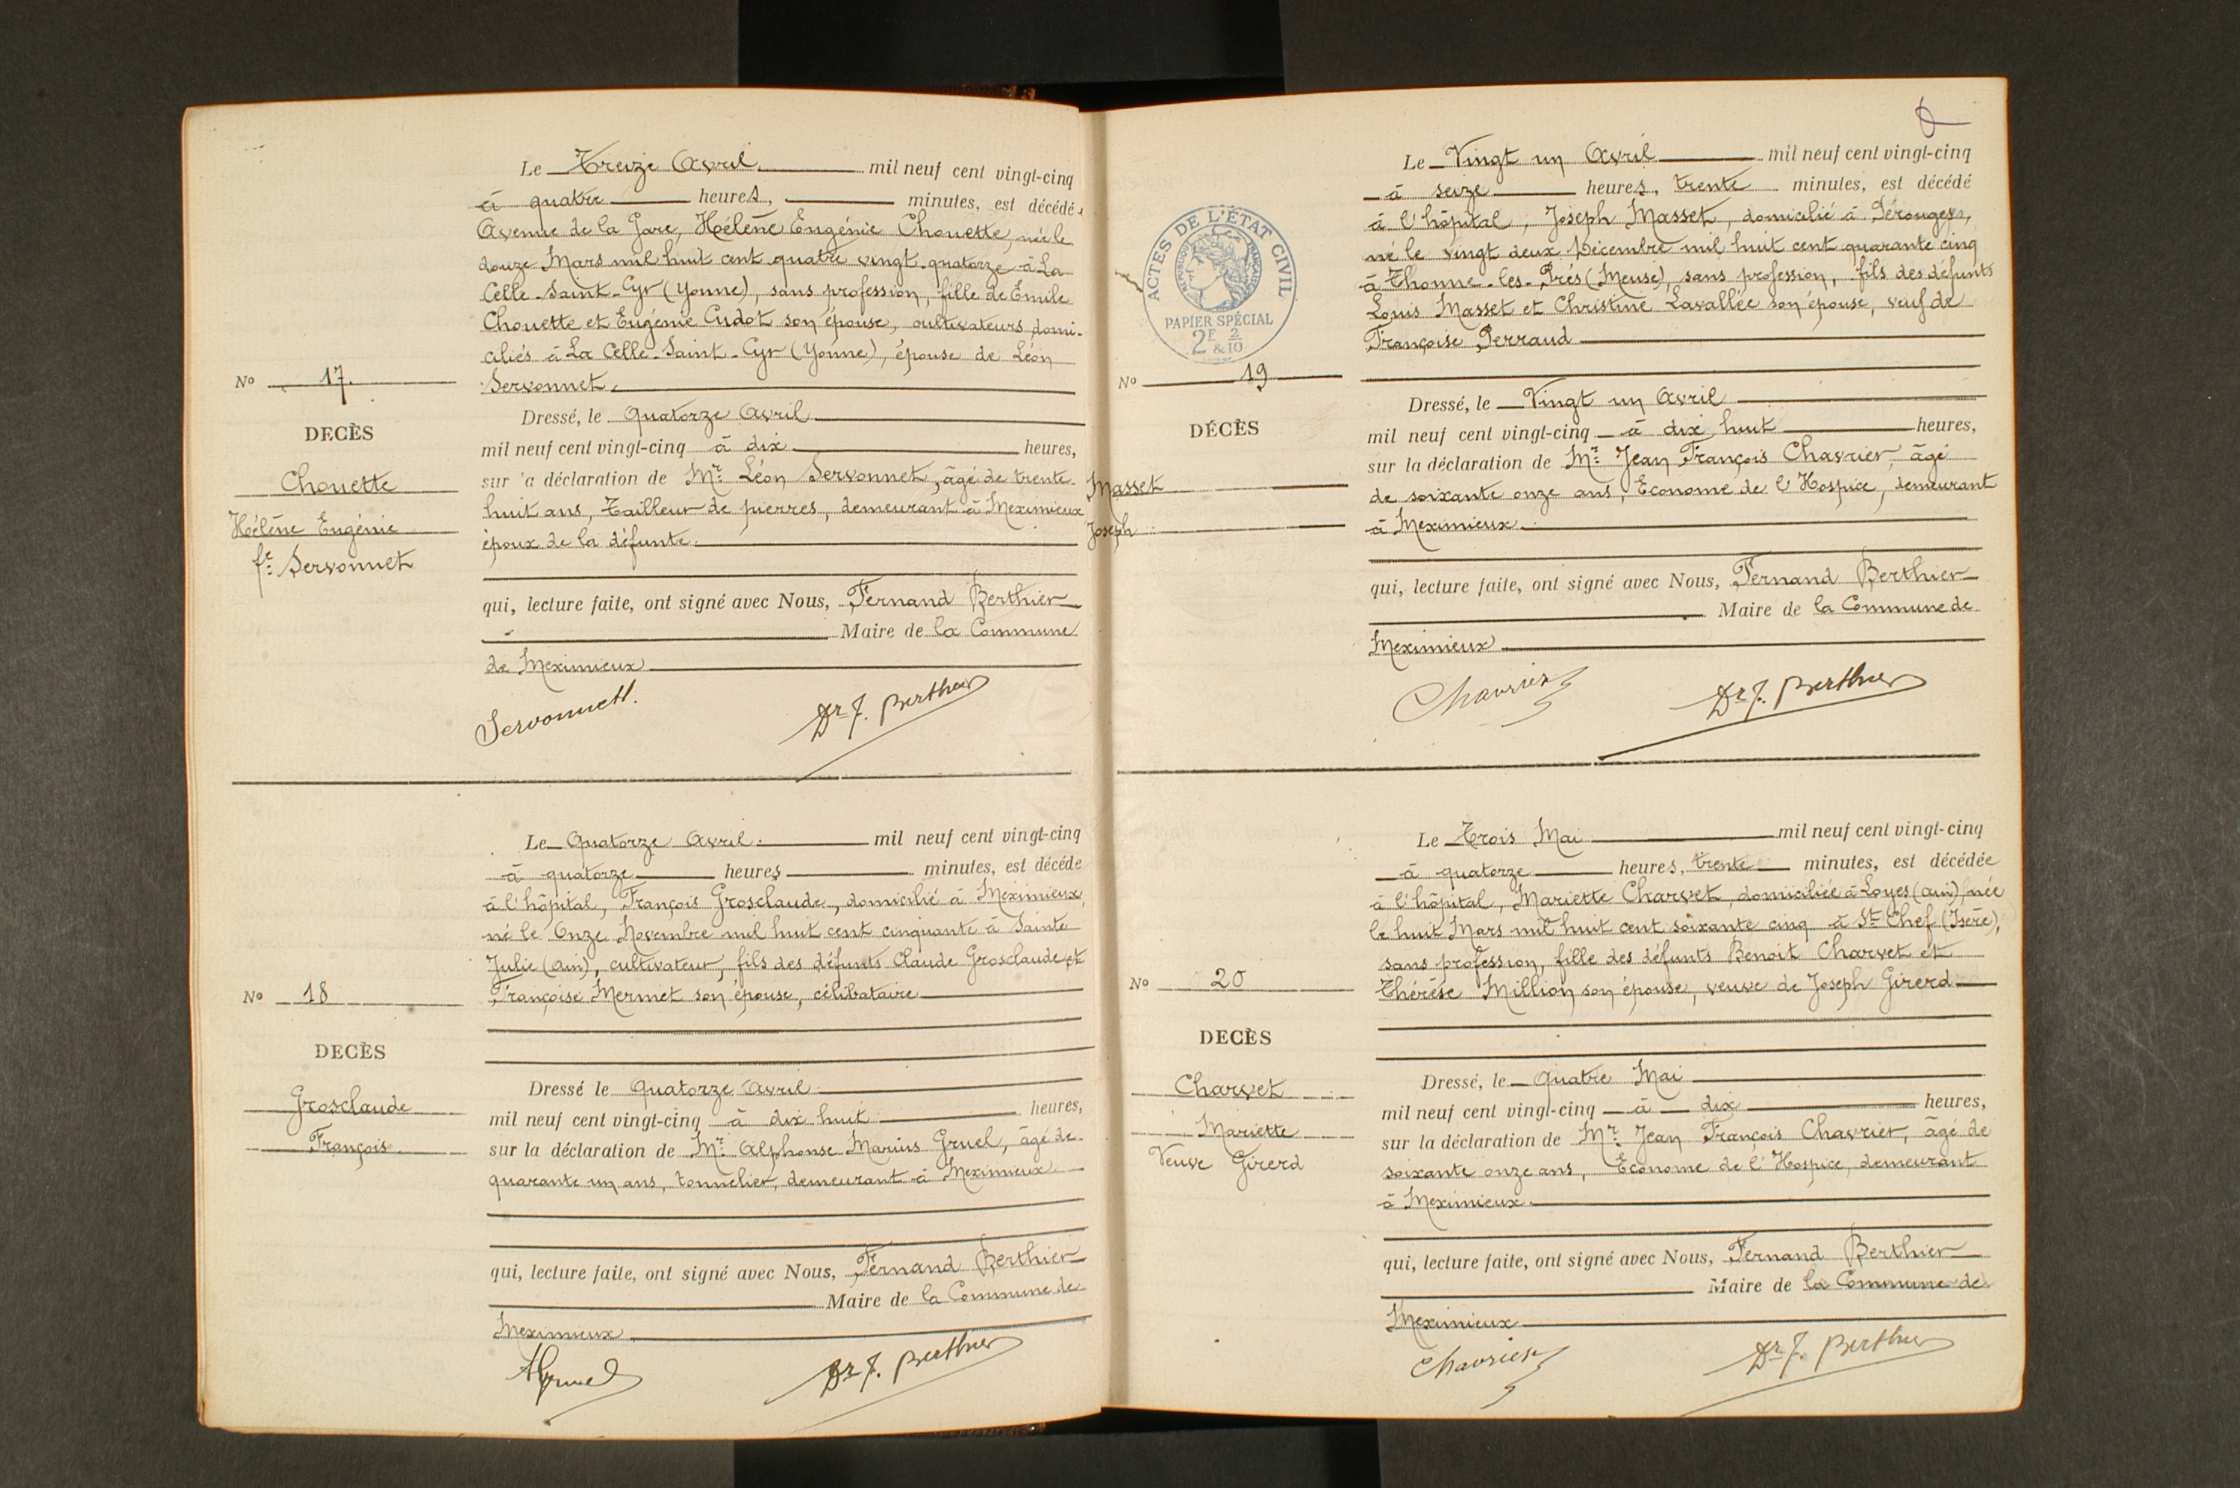 Le Treize Avril mil neuf cent vingt-cinq
à quatre heures, minutes, est décédée
Avenue de la Gare, Hélène Eugénie Chouette, née le
douze Mars mil huit cent quatre vingt-quatorze à La
Celle-Saint-Cyr (Yonne), sans profession, fille de Emile
Chouette et Eugénie Cudot son épouse, cultivateurs domi-
ciliés à La Celle-Saint-Cyr (Yonne), épouse de Léon
Servonnet.
No 17.
DECÈS
Chouette
Hélène Eugénie
fe Servonnet
Dressé, le quatorze Avril
mil neuf cent vingt-cinq à dix heures,
sur a déclaration de Mr Léon Servonnet, âgé de trente-
huit ans, Tailleur de pierres, demeurant à Meximieux
époux de la défunte.
qui, lecture faite, ont signé avec Nous, Fernand Berthier
Maire de la Commune
de Meximieux
Servonnett.
Dr F. Berthier
Le Quatorze Avril. mil neuf cent vingt-cinq
à quatorze heures minutes, est décéde
à l'hôpital, François Grosclaude, domicilié à Meximieux,
né le Onze Novembre mil huit cent cinquante à Sainte
Julie (Ain), cultivateur, fils des défunts Claude Grosclaude et
Françoise Mermet son épouse, célibataire
No 18
DECÈS
Grosclaude
François
Dressé le quatorze Avril
mil neuf cent vingt-cinq à dix huit heures,
sur la déclaration de Mr Alphonse Marius Gruel, âgé de
quarante un ans, tonnelier, demeurant à Meximieux
qui, lecture faite, ont signé avec Nous, Fernand Berthier
Maire de la Commune de
Meximieux
AGruel
Dr F. Berthier
ACTES DE L'ÉTAT CIVIL
PAPIER SPÉCIAL
2E & 2/10
Le Vingt un Avril mil neuf cent vingt-cinq
à seize heures, trente minutes, est décédé
à l'hôpital, Joseph Masset, domicilié à Pérouges,
né le vingt deux Décembre mil huit cent quarante cinq
à Thonne-les-Prés (Meuse), sans profession, fils des défunts
Louis Masset et Christine Lavallée son épouse, veuf de
Françoise Perraud
No 19
DÉCÈS
Masset
Joseph
Dressé, le Vingt un Avril
mil neuf cent vingt-cinq à dix huit heures,
sur la déclaration de Mr Jean François Chavrier, âgé
de soixante onze ans, Econome de l'Hospice, demeurant
à Meximieux
qui, lecture faite, ont signé avec Nous, Fernand Berthier
Maire de la Commune de
Meximieux
Chavrier
Dr F. Berthier
Le Trois Mai mil neuf cent vingt-cinq
à quatorze heures, trente minutes, est décédée
à l'hôpital, Mariette Charvet, domiciliée à Loyes (Ain), née
le huit Mars mil huit cent soixante cinq à St Chef (Isère),
sans profession, fille des défunts Benoit Charvet et
Thérèse Million son épouse, veuve de Joseph Girerd
No 20
DECÈS
Charvet
Mariette
Veuve Girerd
Dressé, le Quatre Mai
mil neuf cent vingt-cinq à dix heures,
sur la déclaration de Mr Jean François Chavrier, âgé de
soixante onze ans, Econome de l'Hospice, demeurant
à Meximieux
qui, lecture faite, ont signé avec Nous, Fernand Berthier
Maire de la Commune de
Meximieux
Chavrier
Dr F. Berthier